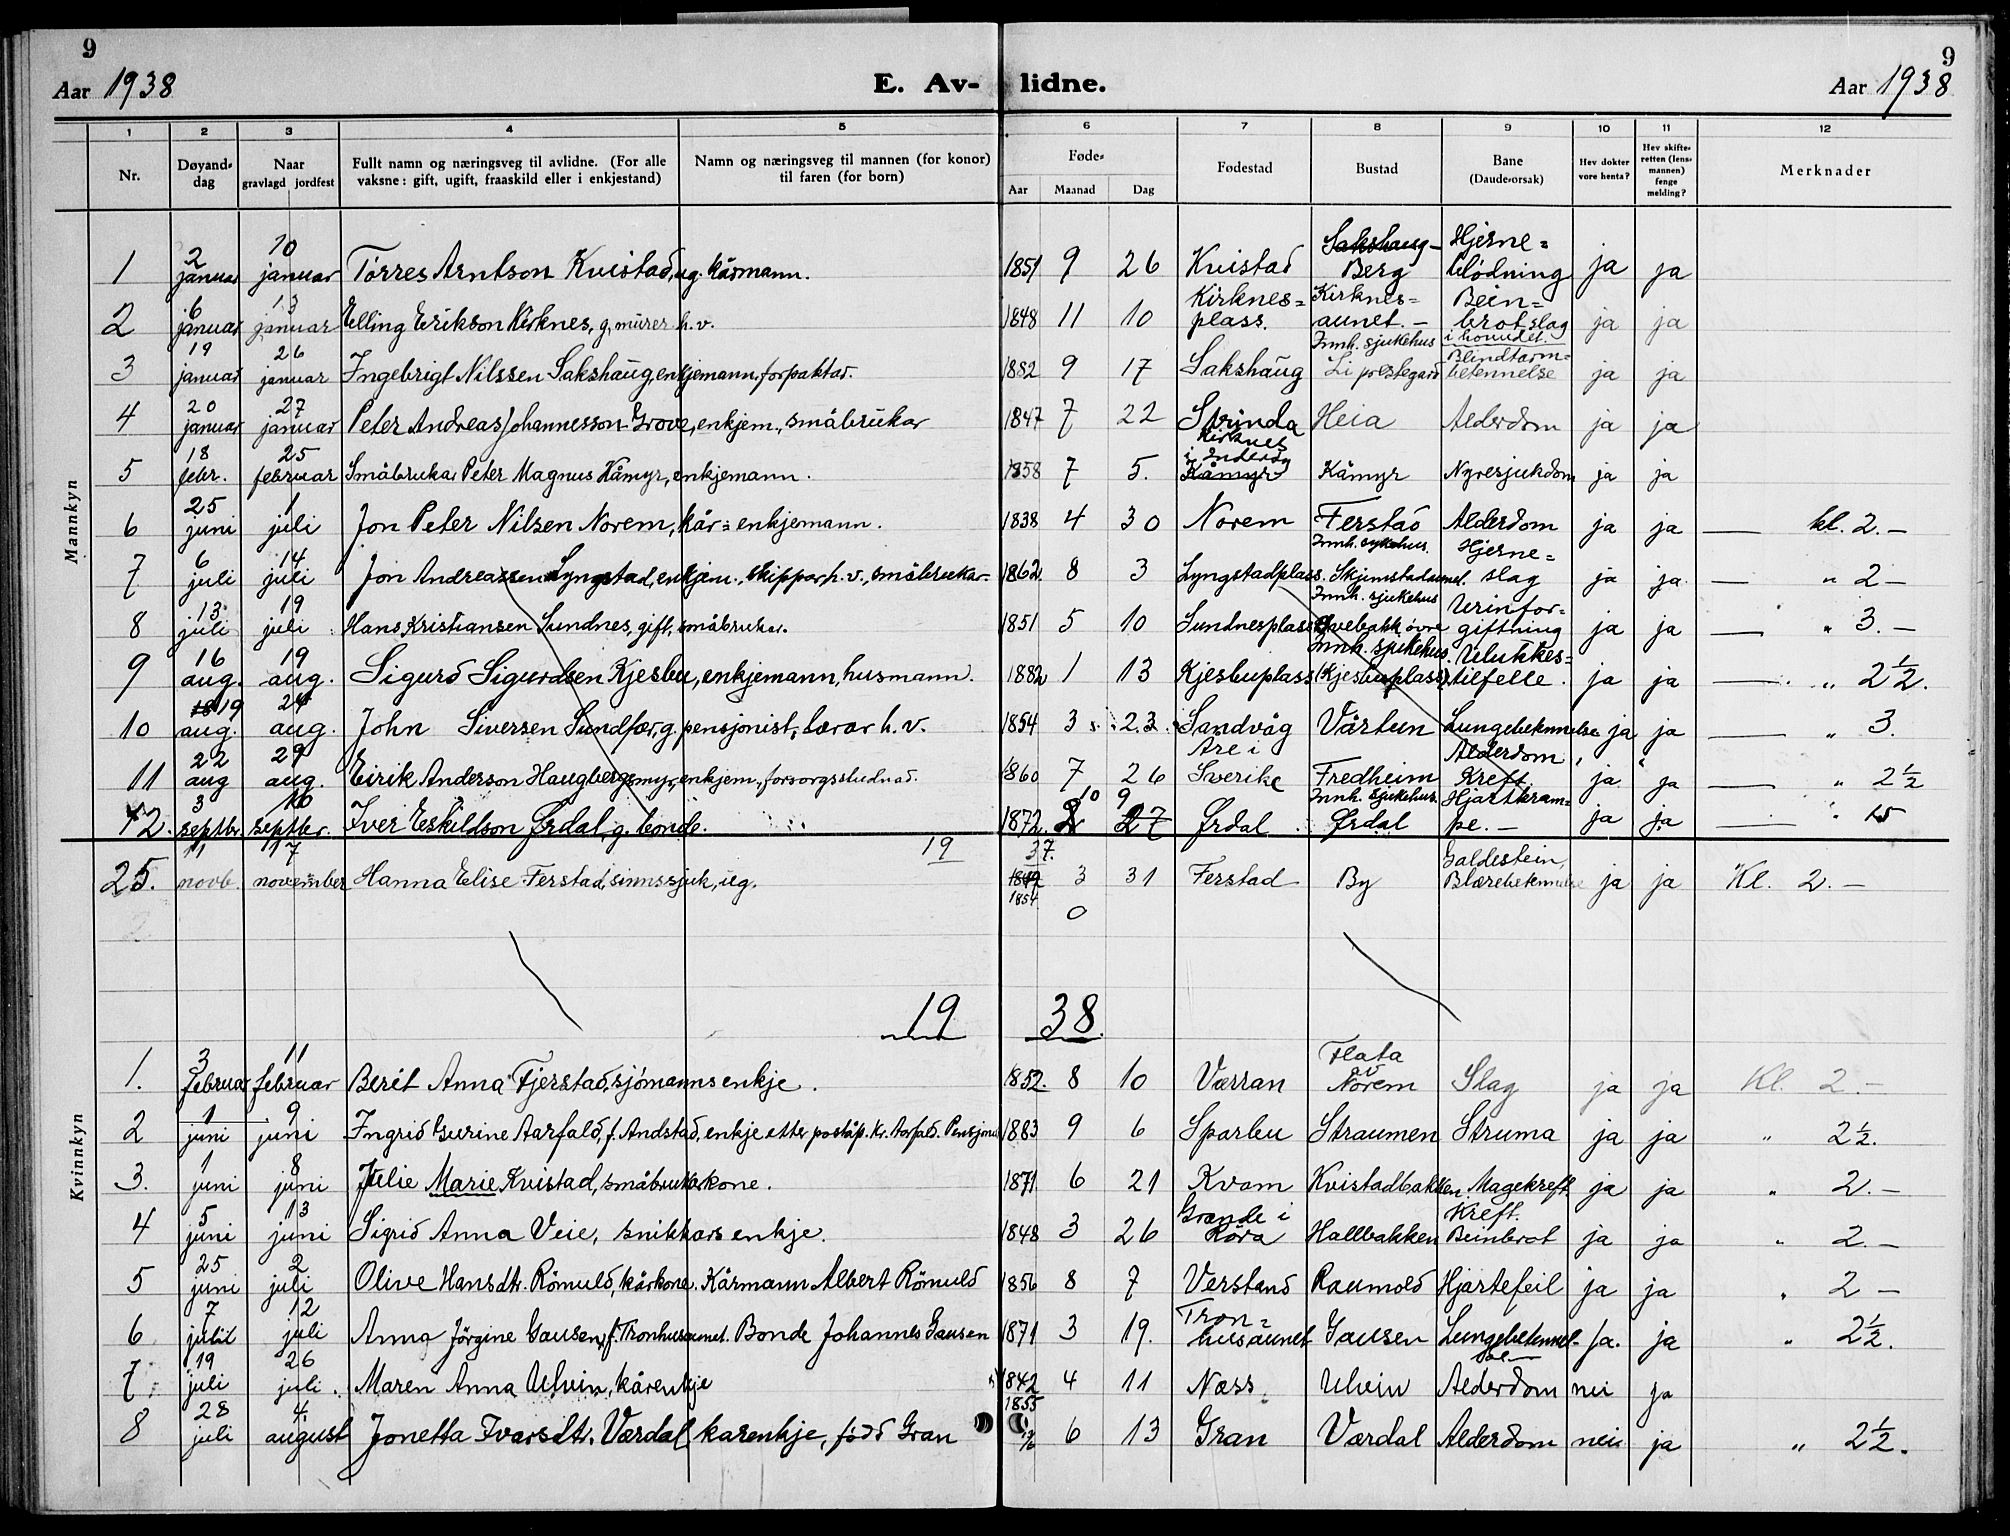 9
9
Aar 1938
E. Av-
lidne.
Aar 1938
1 2 3 4 5 6 7 8 9 10 11 12
Nr.
Døyand-
dag
Naar
gravlagd jordfest
Fullt namn og næringsveg til avlidne. (For alle
vaksne: gift, ugift, fraaskild eller i enkjestand)
Namn og næringsveg til mannen (for konor)
til faren (for born)
Føde-
Aar Maanad Dag
Fødestad
Bustad
Bane
(Daudsorsak)
Hev dokter
vore henta?
Hev skifte-
retten (lens-
mannen)
fenge
melding?
Merknader
Mannkyn
2 10 Sakshaug- Hjerne=
1 januar januar Tørres Arntson Kvistad, ug. kårmann. 1851 9 26 Kvistad Berg blødning ja ja
6 13 Kirknes= Kirknes= Bein=
2 januar januar Elling Erikson Kirknes, g, murer h.v. 1848 11 10 plass. aunet. - brot slag ja ja
19 26 Innh. sjukehus i hovudet. Blindtarm-
3 januar januar Ingebrigt Nilssen Sakshaug, enkjemann, forpaktar. 1882 9 17 Sakshaug Li prestegard betennelse ja ja
20 27
4 januar januar Peter Andreas Johannesson Grove, enkjem., småbrukar 1847 7 22 Strinda Heia Alderdom ja ja
18 25 Kirknes i Inderøy
5 febr. februar Småbrukar Peter Magnus Kåmyr, enkjemann. 1858 7 5. Kåmyr Kåmyr Nyresjukdom ja ja
25 1
6 juni juli Jon Peter Nilsen Norem, kår= enkjemann. 1838 4 30 Norem Ferstad Alderdom ja ja kl. 2.-
6 14 Innh. sykehus. Hjerne=
7 juli juli Jon Andreassen Lyngstad, enkjem., skippar h.v., småbrukar- 1862 8 3 Lyngstadplass. Skjemstadaunet. slag ja ja. " 2-
13 19 Innh. sjukehus Urinfor=
8 juli juli Hans Kristiansen Sundnes, gift, småbrukar. 1851 5 10 Sundnesplass øvre giftning ja ja " 3.-
16 19 Innh. sjukehus. Ulukkes=
9 aug. aug. Sigurd Sigurdsen Kjesbu, enkjemann, husmann. 1882 1 13 Kjesbuplass (Kjesbuplass) tilfelle. ja ja " 2½.
18 19 24
10 aug. aug. John Siversen Sundfær, g. pensjonist, lærar h.v. 1854 3 23. Sandvåg Vårtun Lungebetennelse ja ja " 3.
22 29 Åre i Alderdom
11 aug aug. Eirik Anderson Haugbergsmyr, enkjem., forsorgsstudnad. 1860 7 26 Sverike Fredheim Kreft ja ja " 2½
3 10 10 9 Innh. sjukehus. Hjartkram=
12. septbr. septbr. Iver Eskildson Ørdal, g. bonde. 1872. 2 27 Ørdal Ørdal pe.- ja ja " 15
11 17 19 37. Galdestein,
25. novb. november Hanna Elise Ferstad, sinnssjuk, ug. 1849 3 31 Ferstad By Blærebetennelse ja ja Kl. 2.-
1854
0
19 38.
Kvinnkyn
3 11 Flata av
1. februar februar Berit Anna Fjerstad, sjømannsenkje. 1852. 8 10 Værran Norem Slag ja ja Kl. 2.-
1 9
2 juni juni Ingrid Gurine Aarfald, f. Andstad, enkje etter poståp. Kr. Aarfald. 1883 9 6 Sparbu Straumen Struma ja ja " 2½.
1 8
3. juni juni Julie Marie Kvistad, småbrukarkone. 1871 6 21 Kvam Kvistadbakken. Magekreft ja ja " 2.-
5 13 Grande i Kreft.
4 juni juni Sigrid Anna Veie, snikkarsenkje. 1848 3 26 Røra Hallbakken Beinbrot ja ja " 2.-
25 2
5 juni juli Olive Hansdtr. Römuld, kårkone. Kårmann Albert Römuld 1856 8 7 Verstand Raumold Hjartefeil ja ja " 2-
7 12 Tron=
6 juli juli Anna Jörgine Gausen, f. Tronhusaunet. Bonde Johannes Gausen 1871 3 19. husaunet Gausen Lungebetennel- ja. ja " 2½.
19 26
7. juli juli. Maren Anna Ulvin, kårenkje 1842 4 11 Næss Ulvin Alderdom nei ja
28 4. 1855
8 juli august Jonetta Ivarsdtr. Værdal, kårenkje, född Gran 6 13 Gran Værdal Alderdom nei ja " 2½.